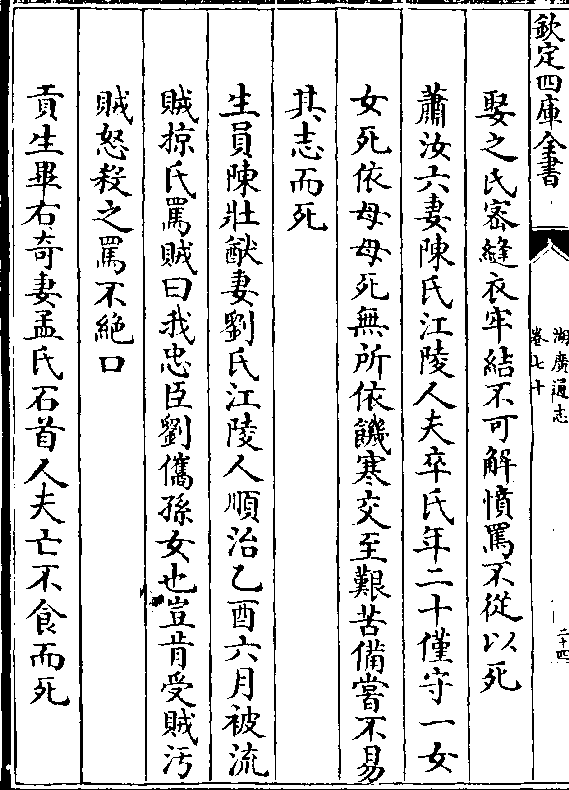 欽定四庫全書
湖廣通志
卷七十
二十四
娶之氏密縫衣牢結不可解憤罵不從以死
蕭汝六妻陳氏江陵人夫卒氏年二十僅守一女
女死依母母死無所依饑寒交至艱苦備嘗不易
其志而死
生員陳壯猷妻劉氏江陵人順治乙酉六月被流
賊掠氏罵賊曰我忠臣劉儁孫女也豈肯受賊汚
賊怒殺之罵不絶口
貢生畢右奇妻孟氏石首人夫亡不食而死